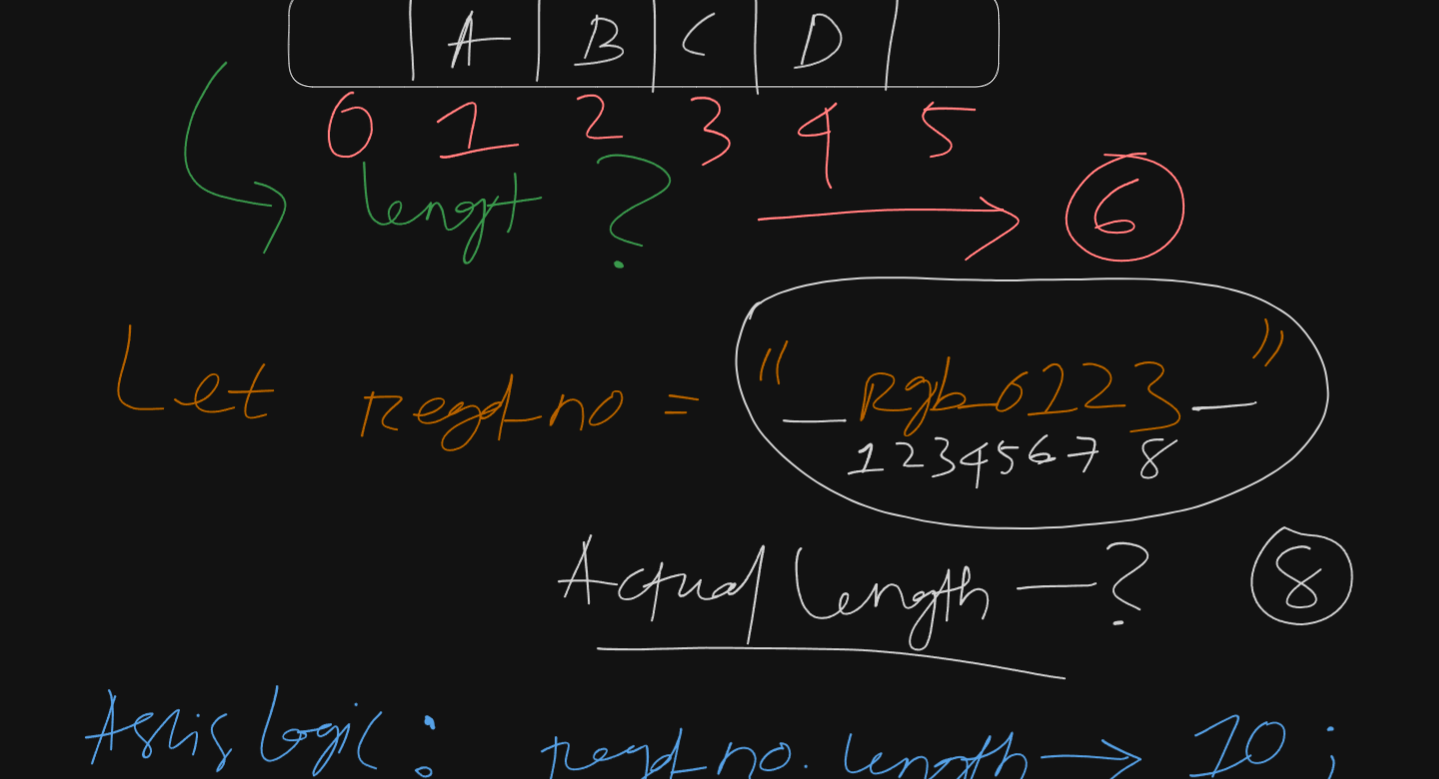 A B C D
0 1 2 3 4 5
lengt ? 6
Let regd_no = "_Rgb_6123_"
12345678
Actual length — ? 8
Ashis Logic : regd_no.length → 10 ;